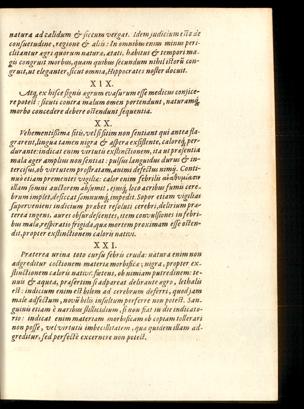 natura ad calidum & siccum vergat. Idem judicium esto de
consuetudine, regione & aliis: In omnibus enim minus peri-
clitantur ægri quorum natura, ætati, habitus & tempori ma-
gis congruit morbus, quam quibus secundum nihil istorū con-
gruit, ut eleganter, sicut omnia, Hippocrates noster docuit.
XIX.
Atq; ex hisce signis ægrum evasurum esse medicus conjice-
re potest: sicuti contra malum omen portendunt, naturamq;
morbo concedere debere ostendunt sequentia.
XX.
Vehementissima sitis, vel si sitim non sentiant qui antea fla-
grarent, lingua tamen nigra & aspera existente, calore q; per-
durante: indicat enim virtutis exstinctionem, ita ut præsentia
mala æger amplius non sentiat: pulsus languidus durus & in-
tercisus, ob virtutem prostratam, animi defectus nimij. Conti-
nuò etiam præmentes vigiliæ: calor enim febrilis
illam somni auctorem absumit, ejusq; loco acribus fumis cere-
brum implet, desiccat somnumq; impedit. Sopor etiam vigilias
superveniens indicium præbet resoluti cerebri, delirium præ-
terea ingens, aures obsurdescentes, item convulsiones in febri-
bus malæ, respiratio frigida, quæ mortem proximam esse osten-
dit, propter exstinctionem caloris nativi.
XXI.
Præterea urina toto cursu febris cruda: natura enim non
adgreditur coctionem materiæ morbificæ; nigra, propter ex-
stinctionem caloris nativi: fœtens, ob nimiam putredinem: te-
nuis & aquea, præsertim si adpareat delirante ægro, lethalis
est: indicium enim est bilem ad cerebrum deferri, quod jam
male adfectum, novū bilis insultum perferre non potest. San-
guinis etiam è naribus stillicidium, si non fiat in die indicato-
rio: indicat enim materiam morbificam ob copiam tollerari
non posse, vel virtutis imbecillitatem, quæ quidem illam ad-
greditur, sed perfectè excernere non potest.